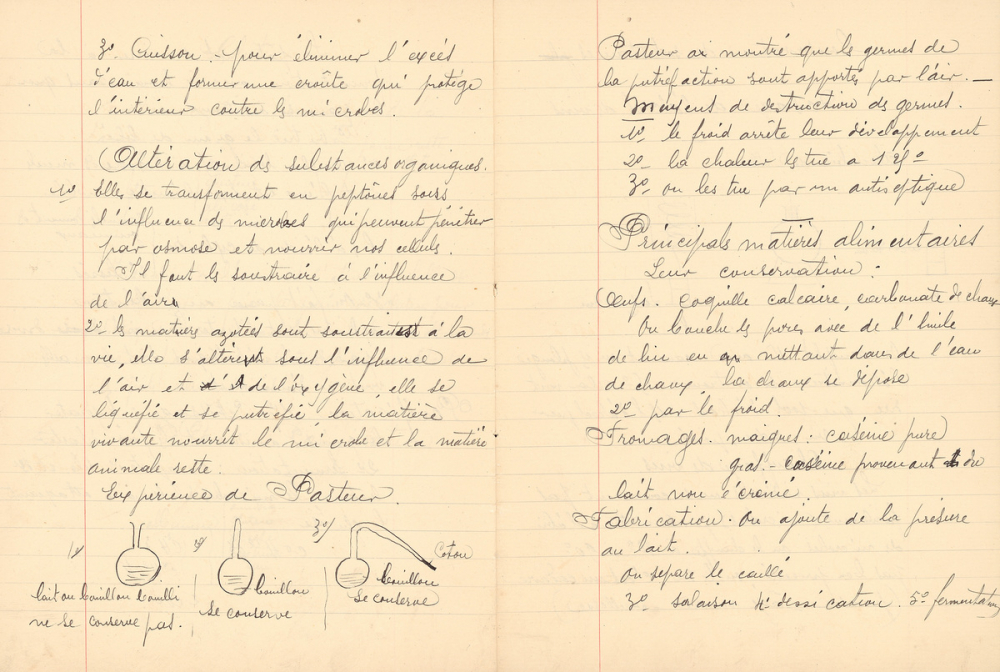 3º Cuisson - pour éliminer l'excés
d'eau et former une croûte qui protége
l'intérieur contre les microbes.
Altération des substances organiques.
1º Elles se transforment en peptônes sous
l'influence des microbes qui peuvent pénétrer
par osmose et nourrir nos cellules.
Il faut les soustraire à l'influence
de l'air
2º les matières azotées sont soustraites à la
vie, elles s'altèrent sous l'influence de
l'air et de l'oxygène, elle se
liquéfie et se putréfie, la matière
vivante nourrit le microbe et la matière
animale reste.
Expérience de Pasteur.
1º
2º
3º
coton
lait ou bouillon bouilli
ne se conserve pas.
bouillon
se conserve
bouillon
se conserve
Pasteur a montré que les germes de
la putréfaction sont apportés par l'air. —
Moyens de destruction des germes.
1º le froid arrête leur développement
2º la chaleur les tue a 125º
3º on les tue par un antiseptique
Principales matières alimentaires
Leur conservation :
Œufs. coquille calcaire, carbonate de chaux
On bouche les pores avec de l'huile
de lin ou en mettant dans de l'eau
de chaux, la chaux se dépose
2º par le froid.
Fromages. maigres : caséine pure
gras. - caséine provenant du
lait non écrémé.
Fabrication. On ajoute de la présure
au lait.
On sépare le caillé
3º salaison 4º dessication. 5º fermentation